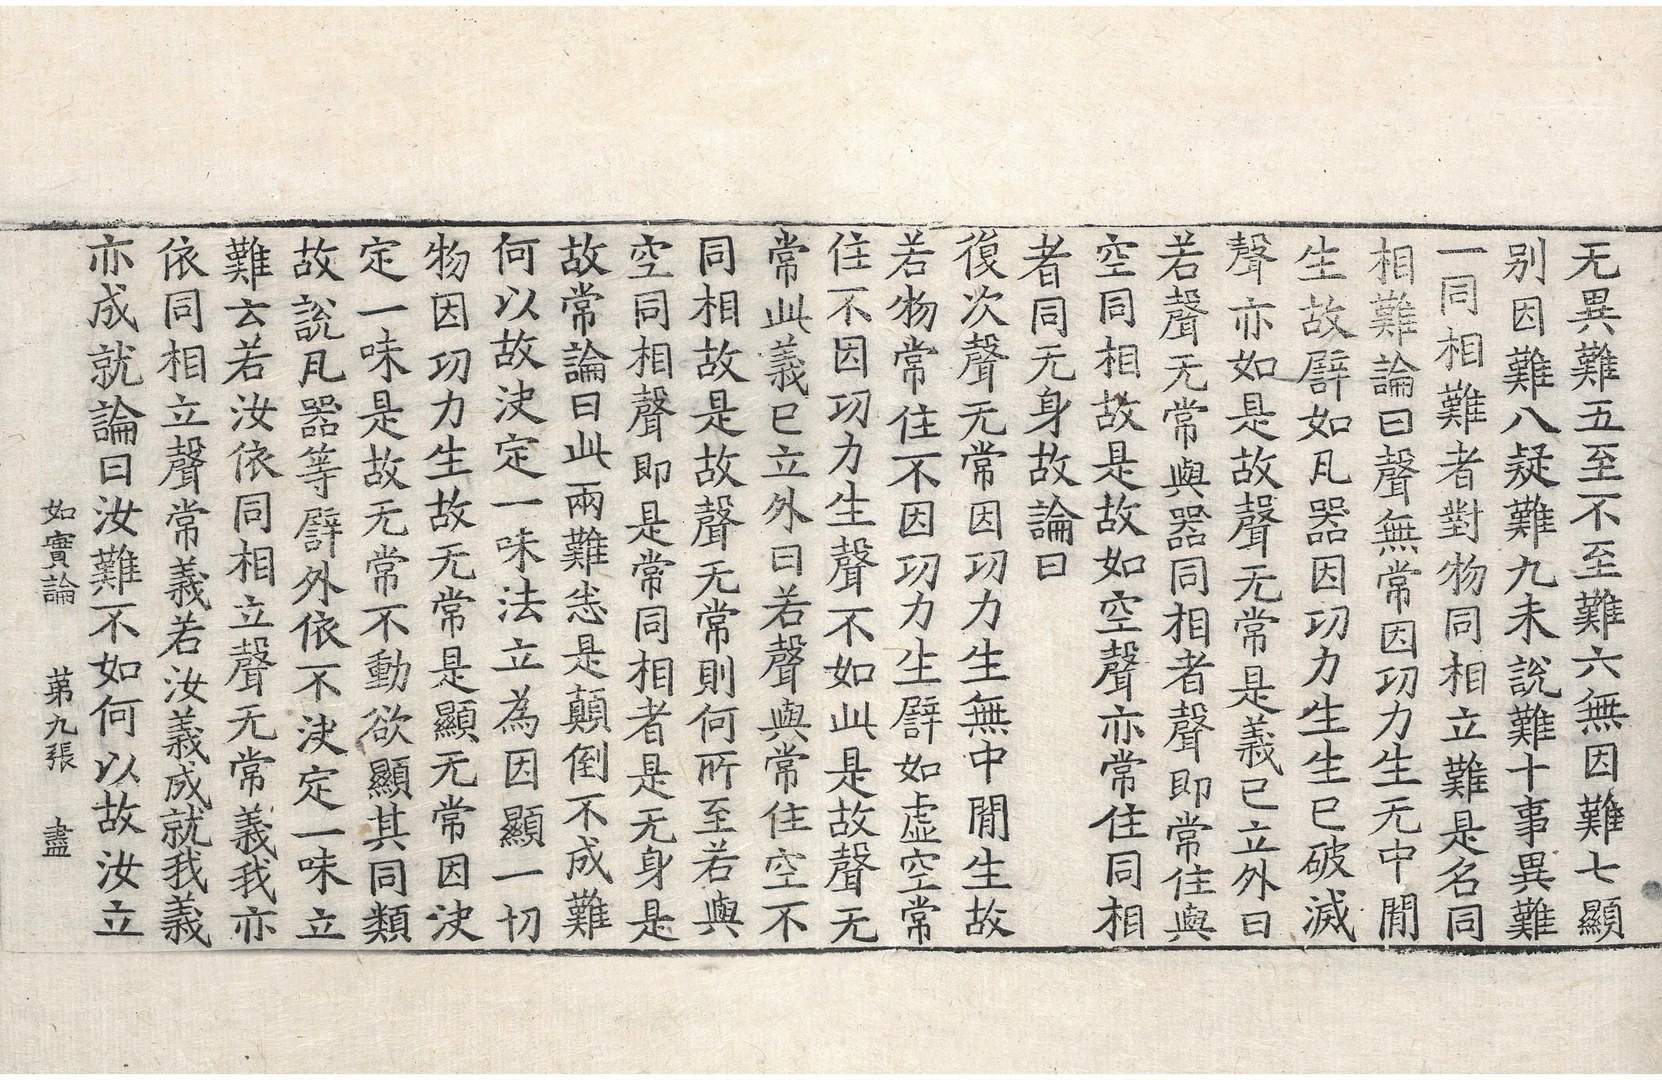 无異難五至不至難六無因難七顯
别因難八疑難九未說難十事異難
一同相難者對物同相立難是名同
相難論曰聲無常因功力生无中間
生故譬如凡器因功力生生已破滅
聲亦如是故聲无常是義已立外曰
若聲无常與器同相者聲即常住與
空同相故是故如空聲亦常住同相
者同无身故論曰
復次聲无常因功力生無中間生故
若物常住不因功力生譬如虛空常
住不因功力生聲不如此是故聲无
常此義已立外曰若聲與常住空不
同相故是故聲无常則何所至若與
空同相聲即是常同相者是无身是
故常論曰此兩難悉是顛倒不成難
何以故决定一味法立為因顯一切
物因功力生故无常是顯无常因决
定一味是故无常不動欲顯其同類
故說凡器等譬外依不决定一味立
難云若汝依同相立聲无常義我亦
依同相立聲常義若汝義成就我義
亦成就論曰汝難不如何以故汝立
如實論 第九張 盡